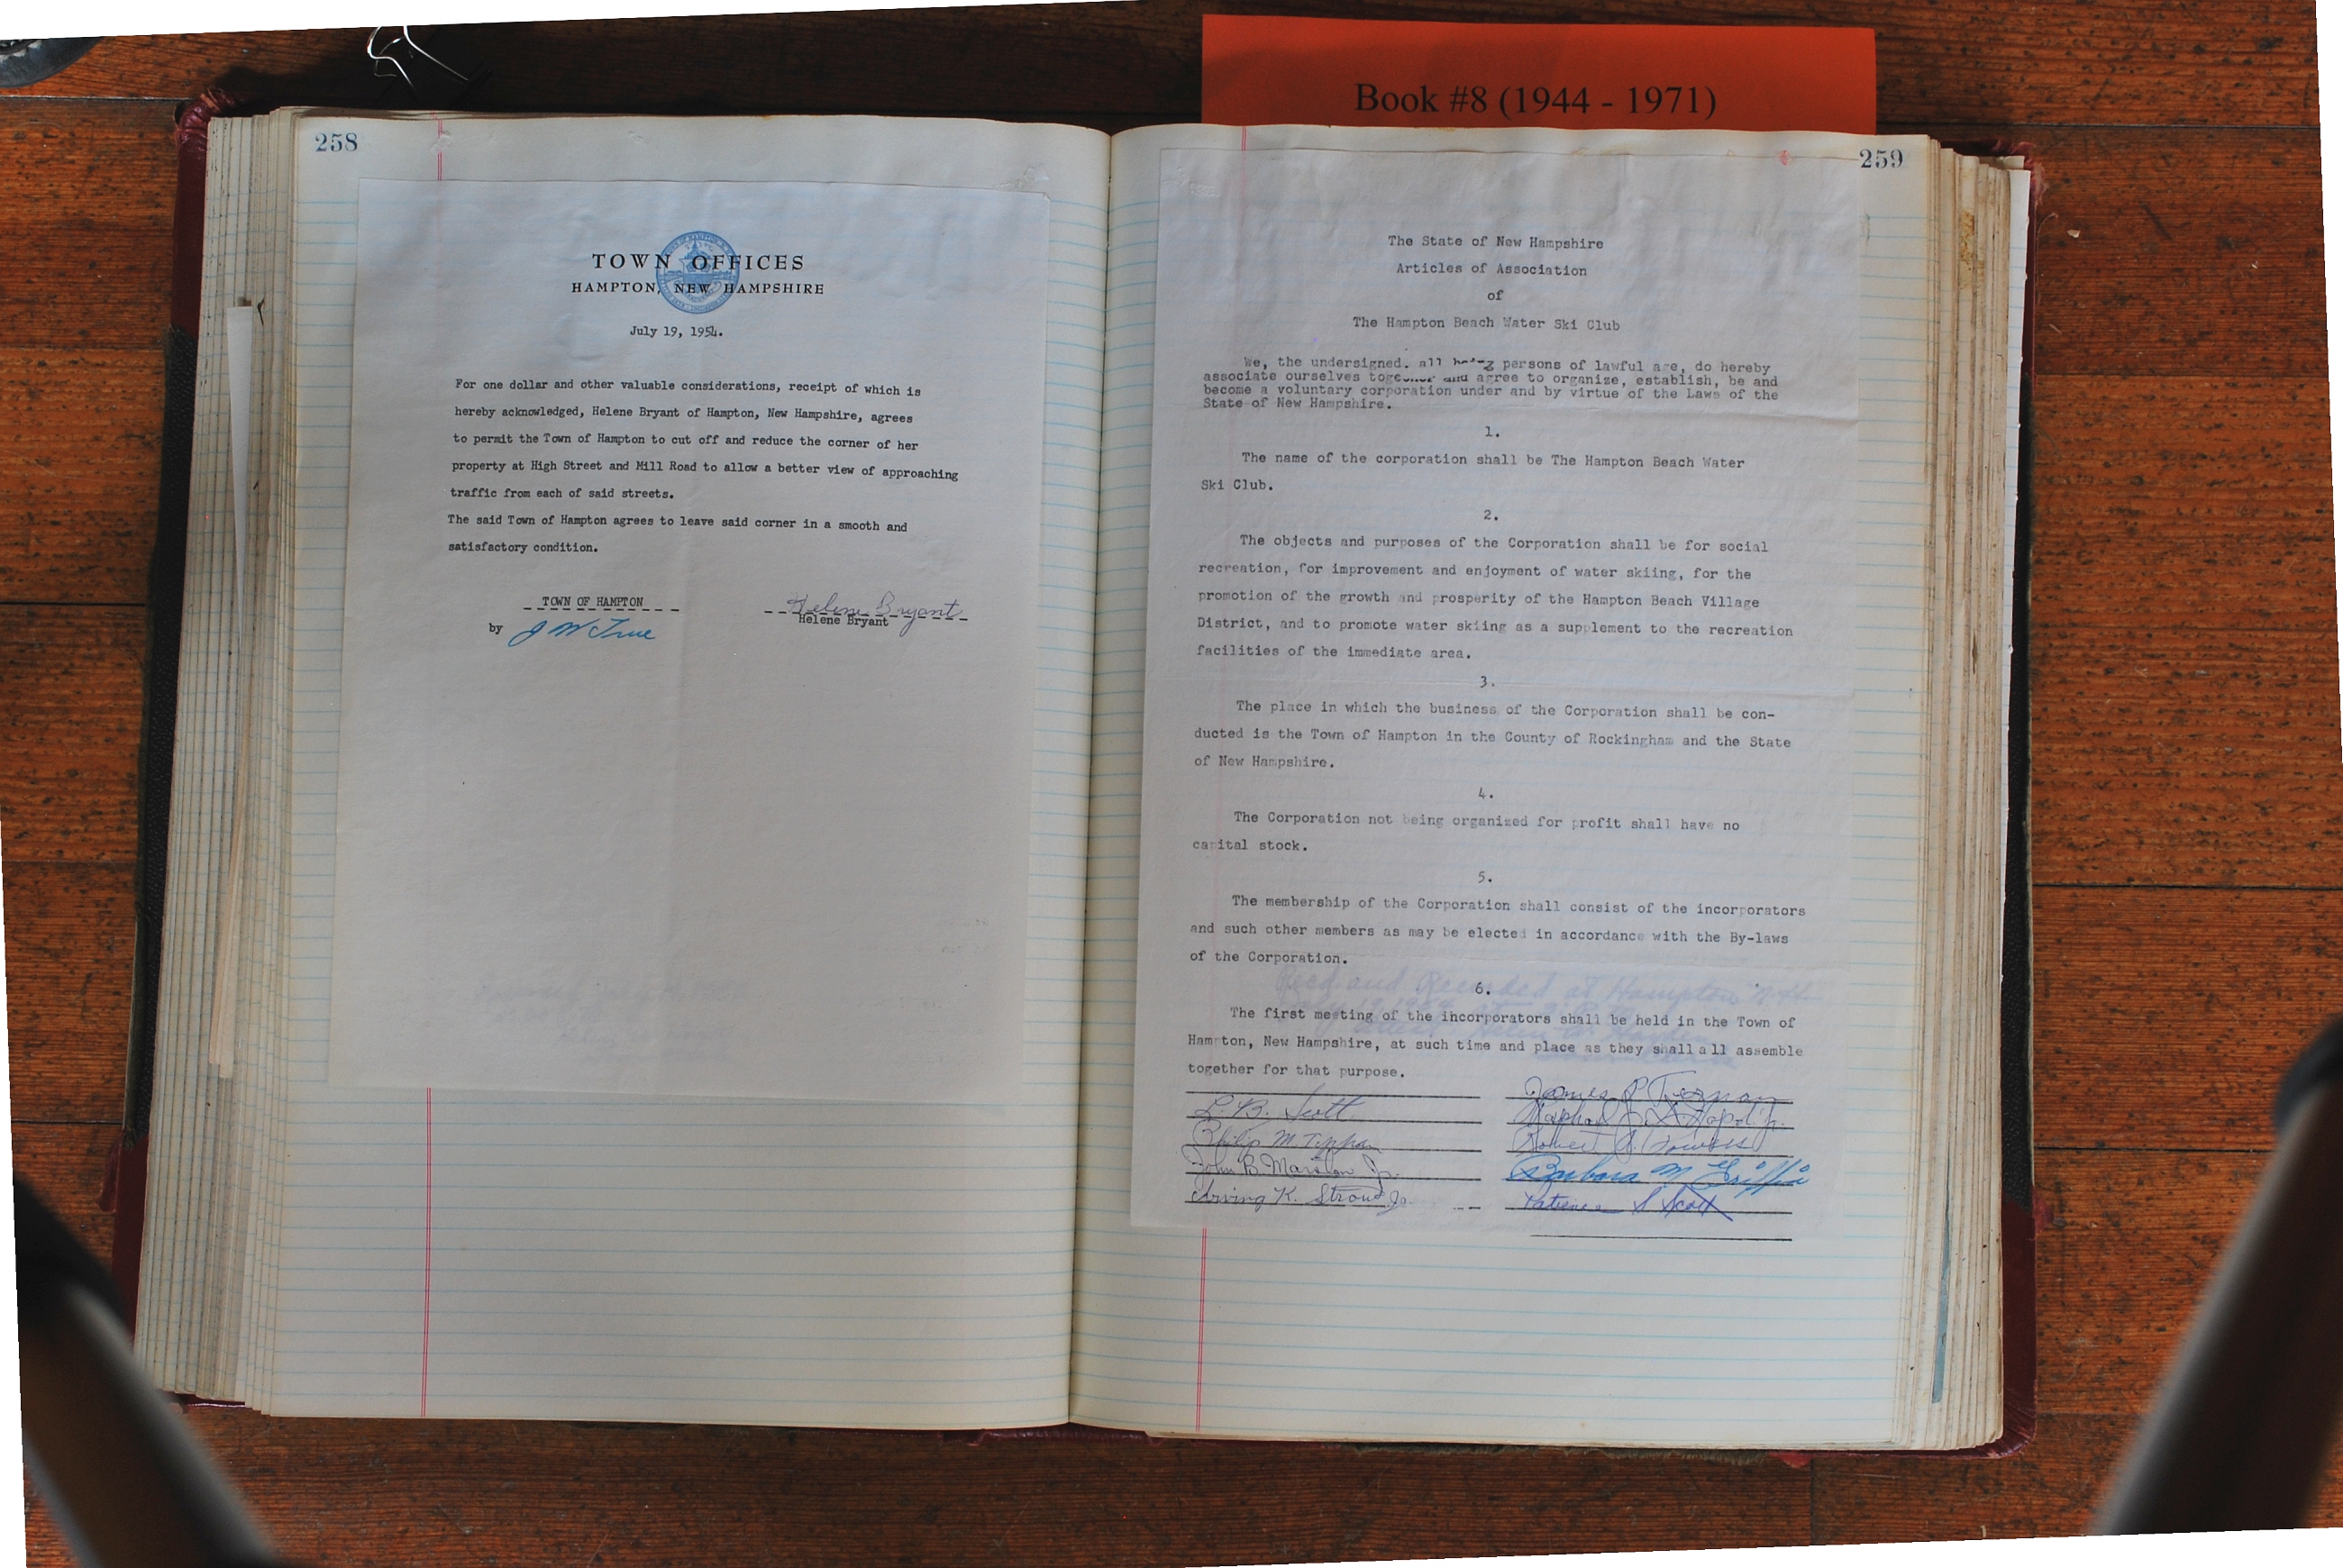 Book #8 (1944 - 1971)
258
TOWN OFFICES
HAMPTON, NEW HAMPSHIRE
July 19, 1954.
For one dollar and other valuable considerations, receipt of which is
hereby acknowledged, Helene Bryant of Hampton, New Hampshire, agrees
to permit the Town of Hampton to cut off and reduce the corner of her
property at High Street and Mill Road to allow a better view of approaching
traffic from each of said streets.
The said Town of Hampton agrees to leave said corner in a smooth and
satisfactory condition.
TOWN OF HAMPTON
by J W True
Helene Bryant
Helene Bryant
259
The State of New Hampshire
Articles of Association
of
The Hampton Beach Water Ski Club
We, the undersigned, all being persons of lawful age, do hereby
associate ourselves together and agree to organize, establish, be and
become a voluntary corporation under and by virtue of the Laws of the
State of New Hampshire.
1.
The name of the corporation shall be The Hampton Beach Water
Ski Club.
2.
The objects and purposes of the Corporation shall be for social
recreation, for improvement and enjoyment of water skiing, for the
promotion of the growth and prosperity of the Hampton Beach Village
District, and to promote water skiing as a supplement to the recreation
facilities of the immediate area.
3.
The place in which the business of the Corporation shall be con-
ducted is the Town of Hampton in the County of Rockingham and the State
of New Hampshire.
4.
The Corporation not being organized for profit shall have no
capital stock.
5.
The membership of the Corporation shall consist of the incorporators
and such other members as may be elected in accordance with the By-laws
of the Corporation.
6.
The first meeting of the incorporators shall be held in the Town of
Hampton, New Hampshire, at such time and place as they shall all assemble
together for that purpose.
L. B. Scott
Philip M. Toppan
John B. Marston Jr.
Irving K. Stroud Jr.
James P. Tiernan
Robert
Barbara M Griffin
Patience S Scott